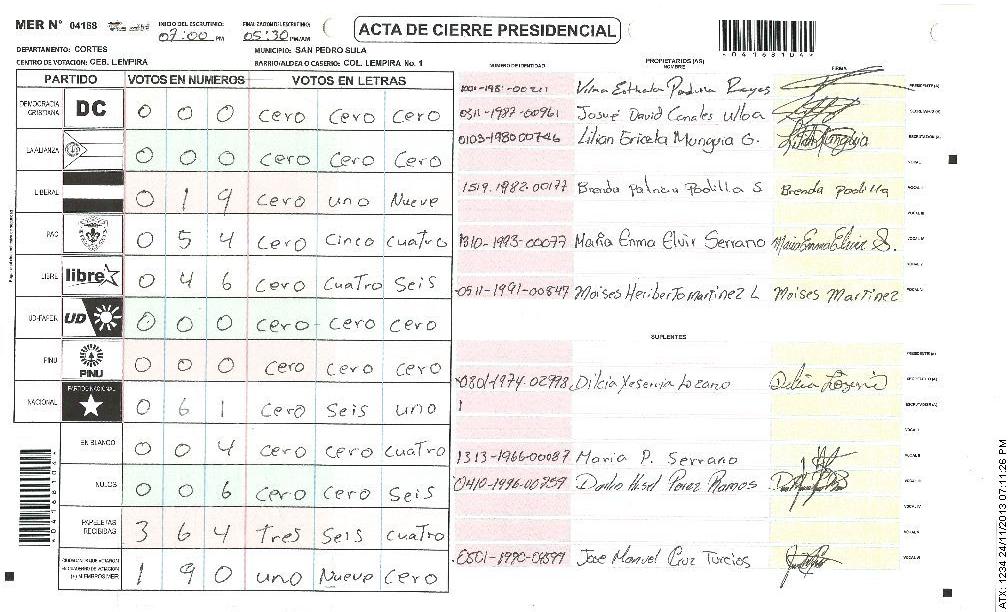 MER N° 04168 INICIO DEL ESCRUTINIO: 07:00 PM FINALIZACION DEL ESCRUTINIO: 05:30 PM/AM
ACTA DE CIERRE PRESIDENCIAL
DEPARTAMENTO: CORTES MUNICIPIO: SAN PEDRO SULA
CENTRO DE VOTACION: CEB. LEMPIRA BARRIO/ALDEA O CASERIO: COL. LEMPIRA No. 1
PARTIDO VOTOS EN NUMEROS VOTOS EN LETRAS
DEMOCRACIA CRISTIANA DC 0 0 0 cero cero cero
LA ALIANZA 0 0 0 cero cero cero
LIBERAL 0 1 9 cero uno Nueve
PAC 0 5 4 cero Cinco cuatro
LIBRE libre 0 4 6 cero cuatro Seis
UD-FAPER UD 0 0 0 cero - cero cero
PINU PINU 0 0 0 cero cero cero
NACIONAL PARTIDO NACIONAL 0 6 1 cero Seis uno
EN BLANCO 0 0 4 cero cero cuatro
NULOS 0 0 6 cero cero Seis
PAPELETAS RECIBIDAS 3 6 4 tres Seis cuatro
1 9 0 uno Nueve cero
NUMERO DE IDENTIDAD PROPIETARIOS (AS) NOMBRE FIRMA
PRESIDENTE (A)
0311-1987-00961 Josué David Canales Ulloa SECRETARIO (A)
0103-1980 00746 Lilian Ericela Munguia G. ESCRUTADOR (A)
VOCAL I
1519-1982-00177 Brenda patricia Padilla S Brenda padilla VOCAL II
VOCAL III
1310-1993-00077 Maria Enma Elvir Serrano Maria Enma Elvir S. VOCAL IV
VOCAL V
0511-1991-00847 Moises Heriberto martinez L Moises Martinez VOCAL VI
SUPLENTES
PRESIDENTE (A)
0801-1974-02998 Dilcia Yesenia Lozano SECRETARIO (A)
ESCRUTADOR (A)
VOCAL I
1313-1966-00087 Maria P. Serrano VOCAL II
0410-1996-00259 Perez Ramos VOCAL III
VOCAL IV
VOCAL V
Jose Manuel Cruz Turcios VOCAL VI
*04168104*
ATX: 1234 24/11/2013 07:11:26 PM